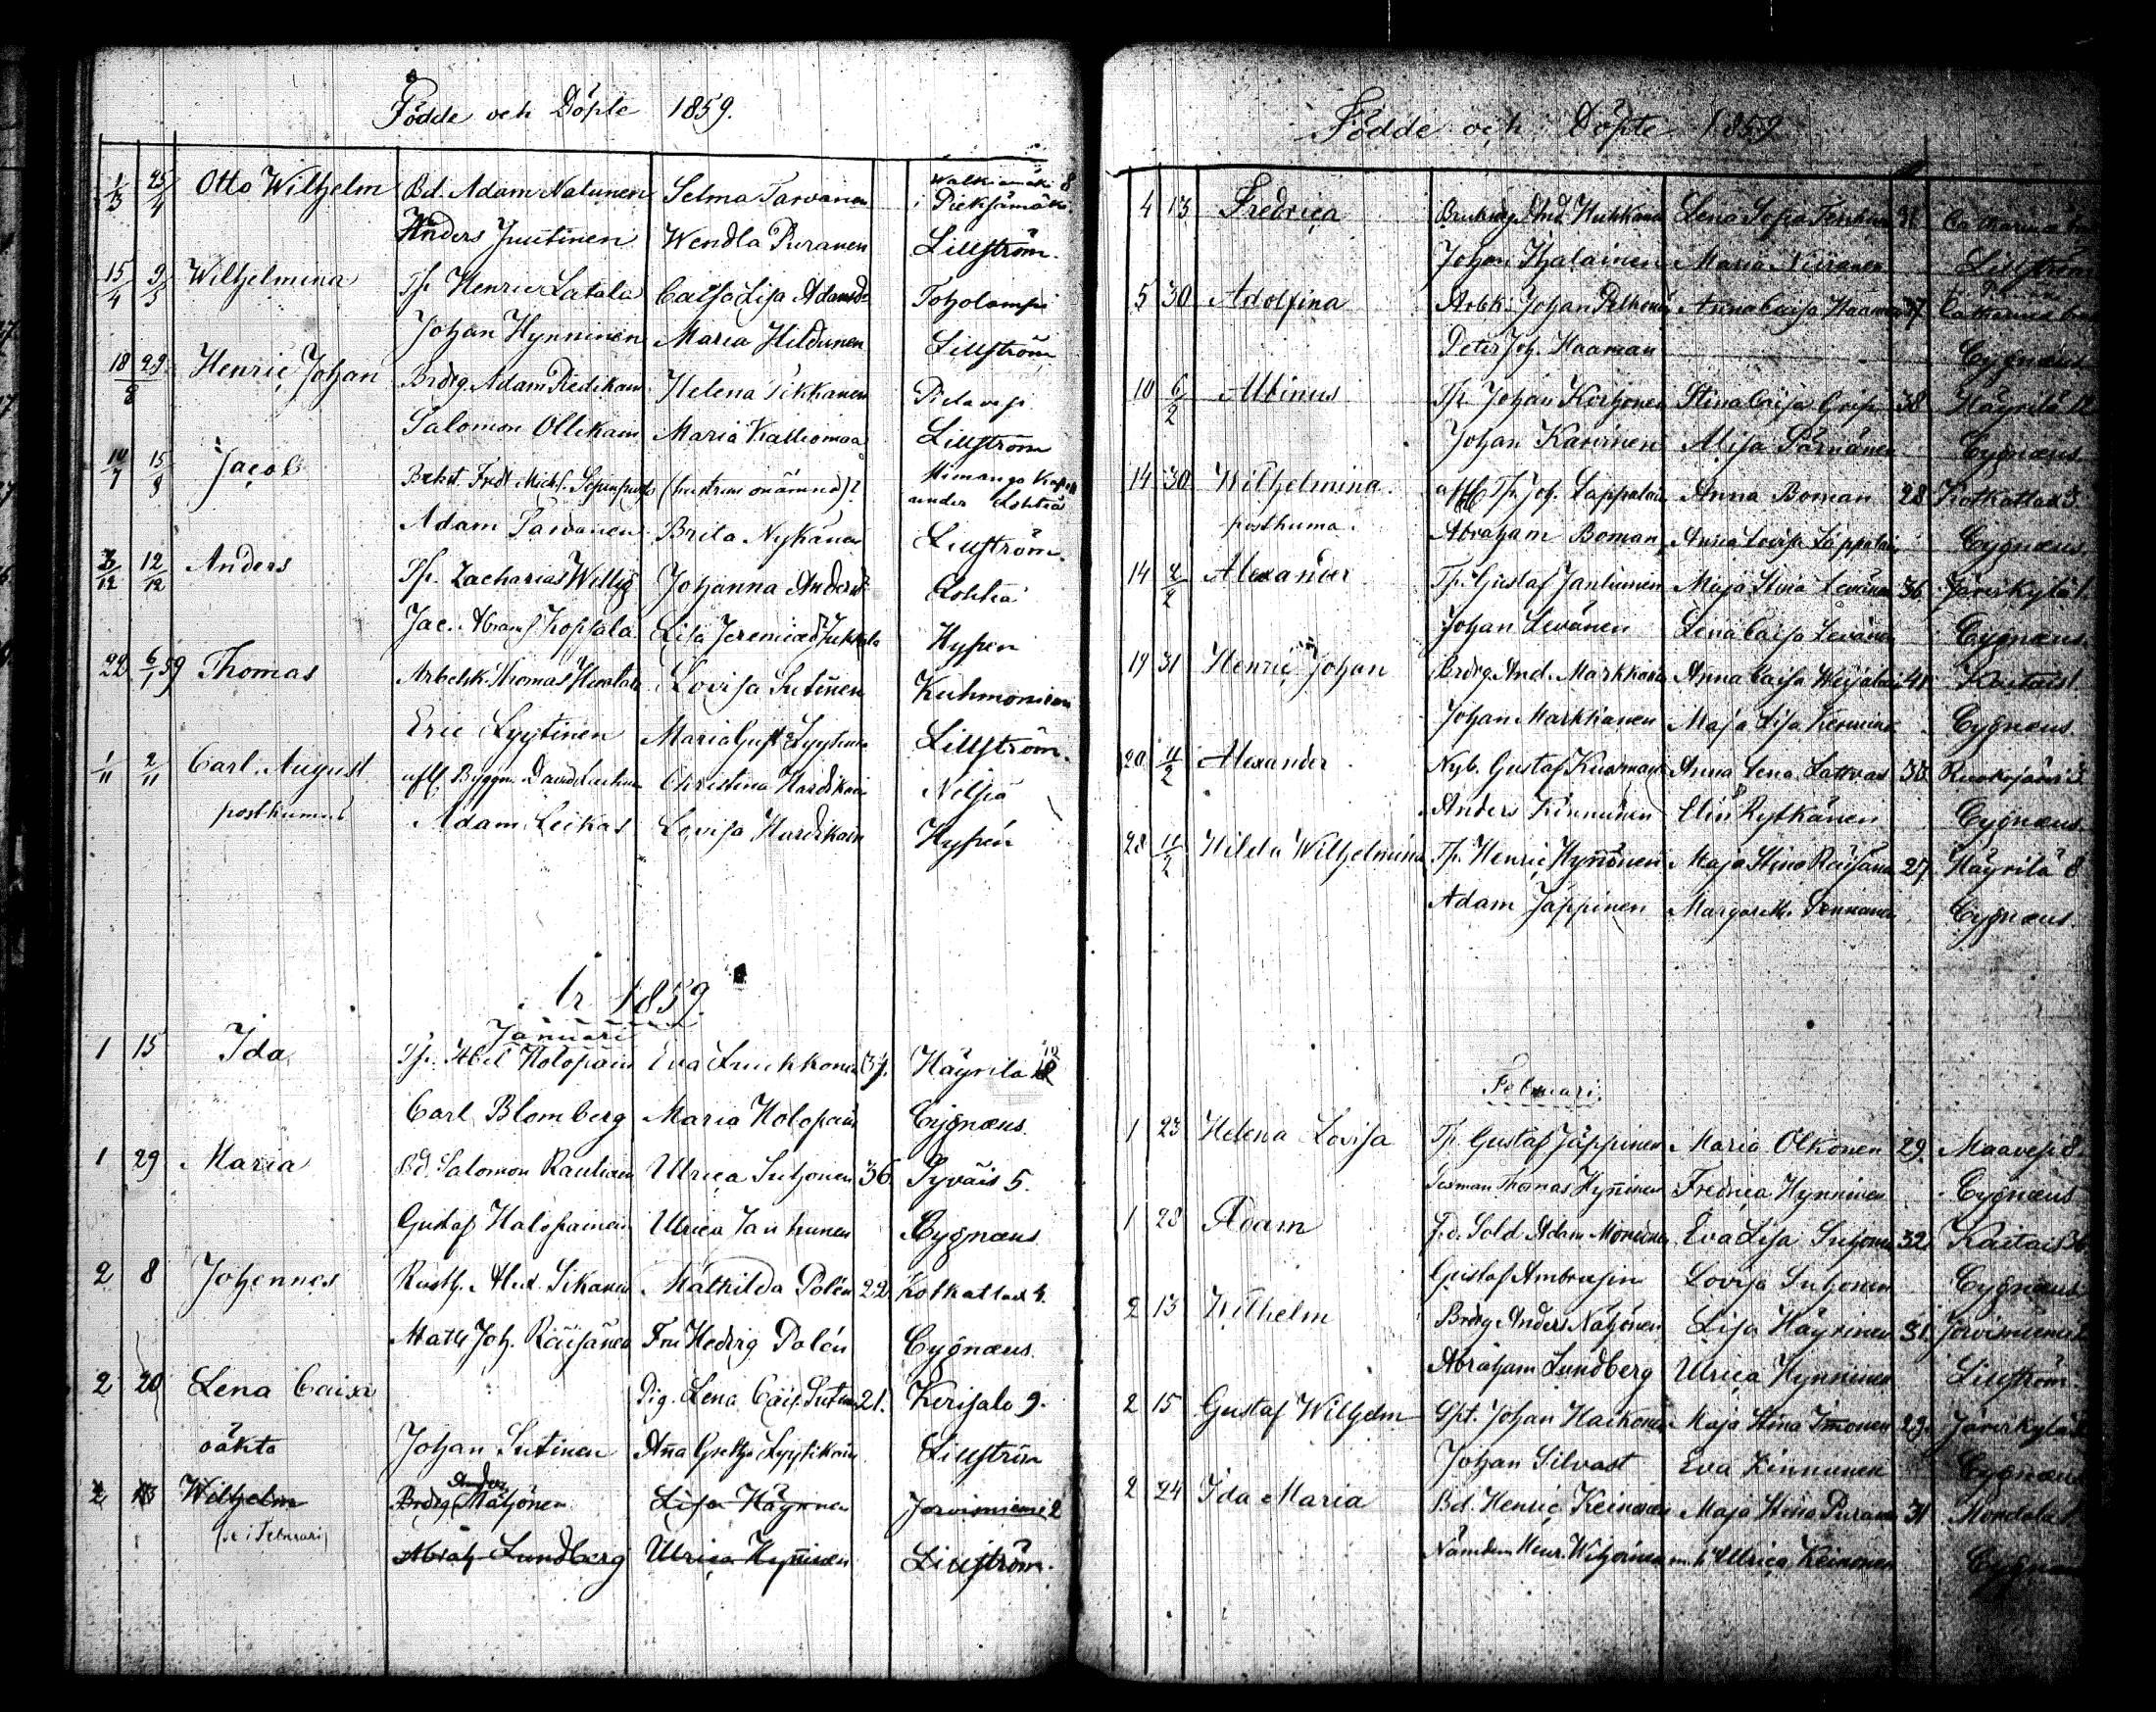 Födde och Döpte 1859.
1/3 25/4 Otto Wilhelm Bd. Adam Natunen Selma Tarvanen Walkiamäki 8 i Pieksämäki
Anders Juutinen Wendla Puranen Lillström.
15/4 9/5 Wilhelmina Tp. Henric Latala Caisa Lisa Adamsd. Toholampi
Johan Hynninen Maria Hildunen Lillström
18 29/8 Henric Johan Brdrg. Adam Piedikain Helena Tikkanen Pielavesi
Salomon Ollikain Maria Kalliomaa Lillström
14/7 15/8 Jacob (hustrun onämnd)? Himango Kapell under Lohteå
Adam Tarvanen Brita Nykänen Lillström.
3/12 12/12 Anders Tp. Zacharias Johanna Andersd. Lohteå
Jac. Abramss. Koppala Lisa Jeremiaed. Hypén
22 6/1 59 Thomas Arbetsk. Thomas Lovisa Sutinen Kuhmoniemi
Eric Lyytinen Maria Gust. Lyytinen Lillström.
1/11 2/11 Carl August afl. Byggm. David Christina Hardikain Nilsiä
posthumus Adam Leikas Lovisa Hardikain Hypén
År 1859.
Januari
1 15 Ida Tp. Abel Holopain Eva Luukkonen 37. Häyrilä 12
Carl Blomberg Maria Holopain Cygnæus.
1 29 Maria Bd. Salomon Rautiain Ulrica Suhonen 36 Syväis 5.
Gustaf Holopainen Ulrica Janhunen Cygnæus.
2 8 Johannes Rusth. Alex. Sikanen Mathilda Polén 22. Kotkatlax 4.
Matts Joh. Räisänen Fru Hedvig Polén Cygnæus.
2 20 Lena Caisa Pig. Lena Cais. Sutinen 21. Kerisalo 9.
oäkta Johan Sutinen Anna Gretha Lyytikäin Lillström
2 13 Wilhelm Brdrg. Anders Nätjönen Lisa Häyrinen Jorvisniemi 2
(se i Februari)
Abrah. Lundberg Ulrica Hynninen Lillström.
Födde och Döpte 1859
4 13 Fredrica And. Hukkanen Lena Sofia Tenhunen
Johan Ihalainen Maria Niiranen Lillström
5 30 Adolfina Arbk. Johan Pelkonen Anna Caisa Haaman 37.
Peter Joh. Haaman Cygnæus
10 6/2 Albinus Tp. Johan Korhonen Stina Caisa 38 Häyrilä 12
Johan Karvinen A. Lisa Pärnänen Cygnæus.
14 30 Wilhelmina afl. Tp. Joh. Lappalain Anna Boman 28 Kotkatlax 3.
posthuma. Abraham Boman Anna Lovisa Lappalain Cygnæus.
14 2/2 Alexander Tp. Gustaf Janhunen Maja Stina Levänen 36 Järviskylä 1.
Johan Levänen Lena Caisa Levänen Cygnæus.
19 31 Henric Johan Brdrg. And. Markkanen Anna Caisa Weijalain 41 Kaitais 1.
Johan Markkanen Maja Lisa Cygnæus.
20 11/2 Alexander Nyb. Gustaf Kuosmanen Anna Lena Lattvas 30. Ruokojärvi 3
Anders Kinnunen Elin Rytkänen Cygnæus
28 11/2 Hilda Wilhelmina Tp. Henric Hynönen Maja Stina Räisänen 27. Häyrilä 8
Adam Jäppinen Margareta Cygnæus.
Februari.
1 23 Helena Lovisa Tp. Gustaf Jäppinen Maria Olkonen 29. Maavesi 8.
Sexman Thomas Hynninen Fredrica Hynninen Cygnæus
1 28 Adam F.d. Sold. Adam Eva Lisa Suhonen 32 Kaitais
Gustaf Ambrusin Lovisa Suhonen Cygnæus
2 13 Wilhelm Brdrg Anders Nätjönen Lisa Häyrinen 31. Jorvisniemi 2
Abraham Lundberg Ulrica Hynninen Lillström
2 15 Gustaf Wilhelm Spt. Johan Haikonen Maja Stina Immonen 29. Järviskylä
Johan Silvast Eva Kinnunen Cygnæus
2 24 Ida Maria Bd. Henric Keinonen Maja Stina Puranen 31
Nämdem. Henr. m. h. Ulrica Keinonen Cygnæus